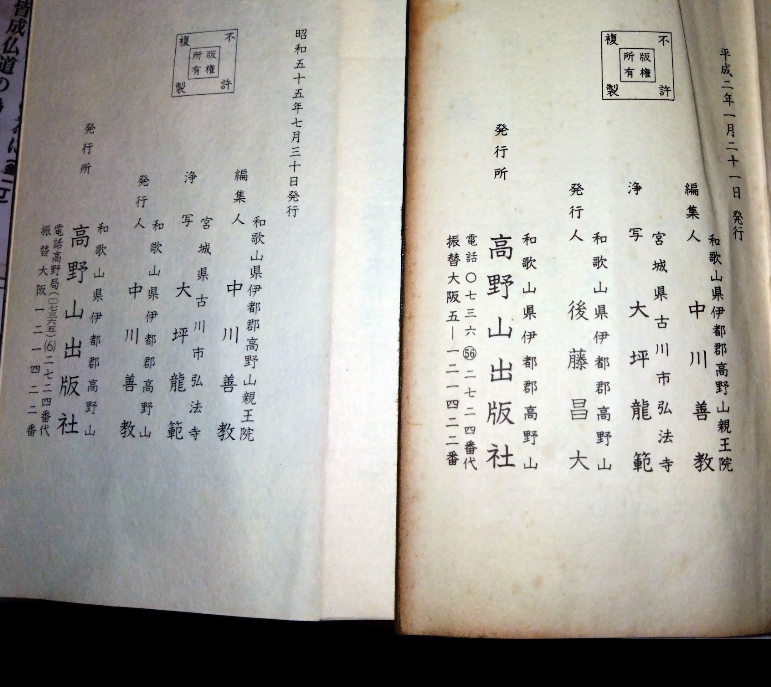 平成二年一月二十一日 発行
不許複製
版権所有
編集人
和歌山県伊都郡高野山親王院
中川善教
浄写
宮城県古川市弘法寺
大坪龍範
発行人
和歌山県伊都郡高野山
後藤昌大
発行所
和歌山県伊都郡高野山
高野山出版社
電話〇七三六㊺二七二四番代
振替大阪五―一二一四二二番
昭和五十五年七月三十日発行
不許複製
版権所有
編集人
和歌山県伊都郡高野山親王院
中川善教
浄写
宮城県古川市弘法寺
大坪龍範
発行人
和歌山県伊都郡高野山
中川善教
発行所
和歌山県伊都郡高野山
高野山出版社
電話高野局(〇七三六五)(6)二七二四番代
振替大阪一二一四二二番
皆成仏道の